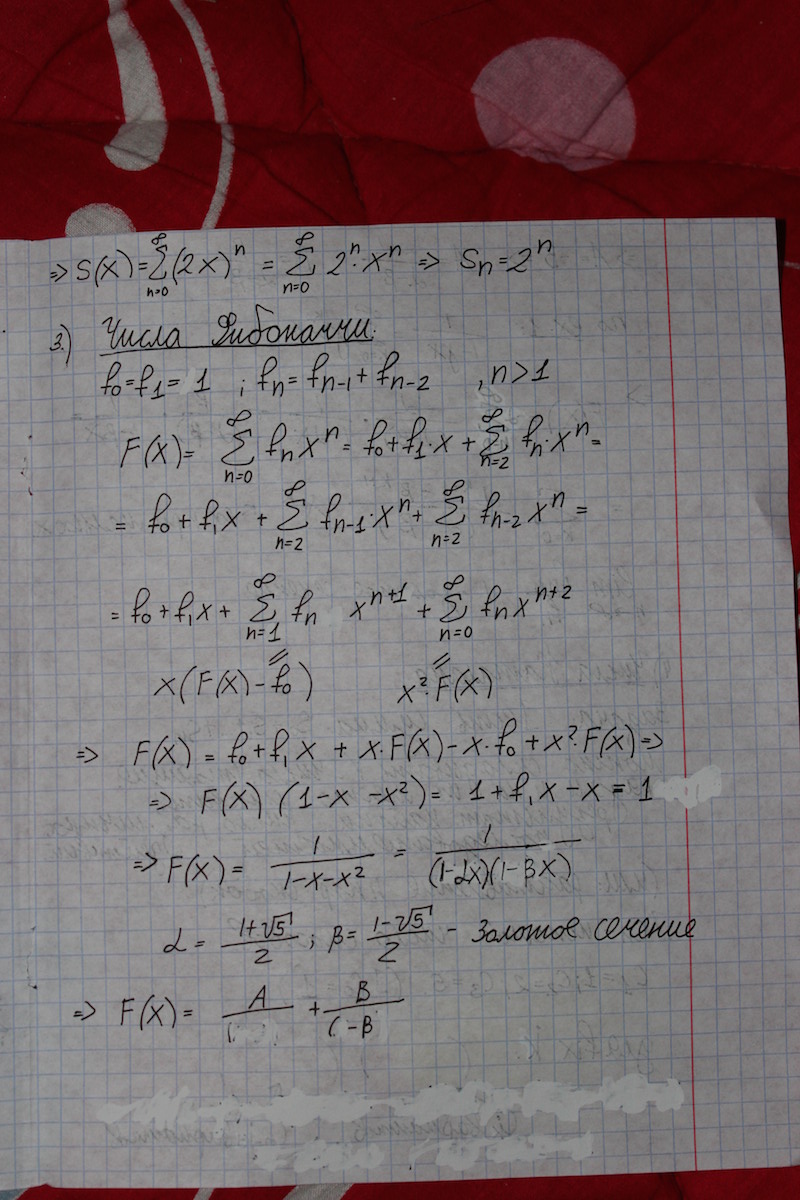 => S(x) = ∑_{n=0}^{∞} (2x)^n = ∑_{n=0}^{∞} 2^n · x^n => S_n = 2^n
3.) Числа Фибоначчи:
f_0 = f_1 = 1 ; f_n = f_{n-1} + f_{n-2} , n > 1
F(x) = ∑_{n=0}^{∞} f_n x^n = f_0 + f_1 · x + ∑_{n=2}^{∞} f_n · x^n =
= f_0 + f_1 x + ∑_{n=2}^{∞} f_{n-1} · x^n + ∑_{n=2}^{∞} f_{n-2} x^n =
= f_0 + f_1 x + ∑_{n=1}^{∞} f_n x^{n+1} + ∑_{n=0}^{∞} f_n x^{n+2}
x(F(x) - f_0) x^2 · F(x)
=> F(x) = f_0 + f_1 x + x · F(x) - x · f_0 + x^2 · F(x) =>
=> F(x) (1 - x - x^2) = 1 + f_1 x - x = 1
=> F(x) = 1/(1-x-x^2) = 1/((1-αx)(1-βx))
α = (1+√5)/2 ; β = (1-√5)/2 - Золотое сечение
=> F(x) = A/( + B/( -β